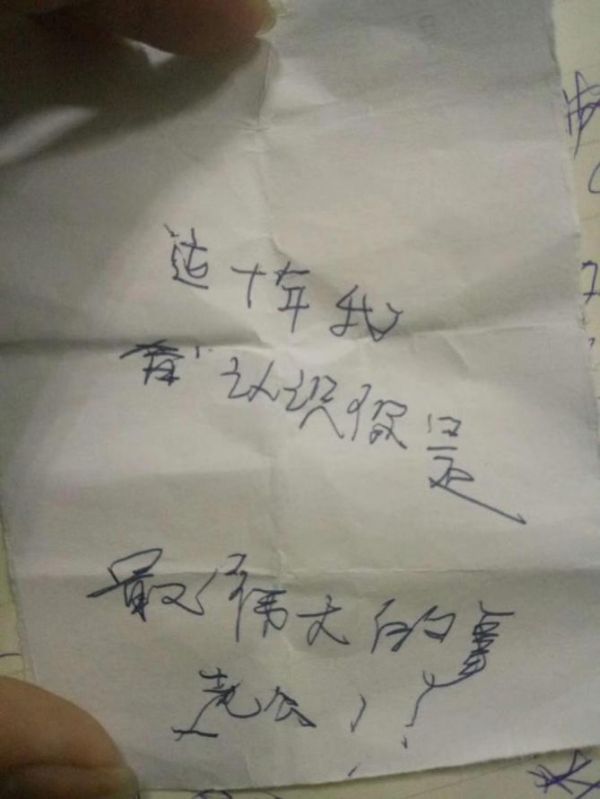 这十年我
认识你是
最伟大的事
老公!!